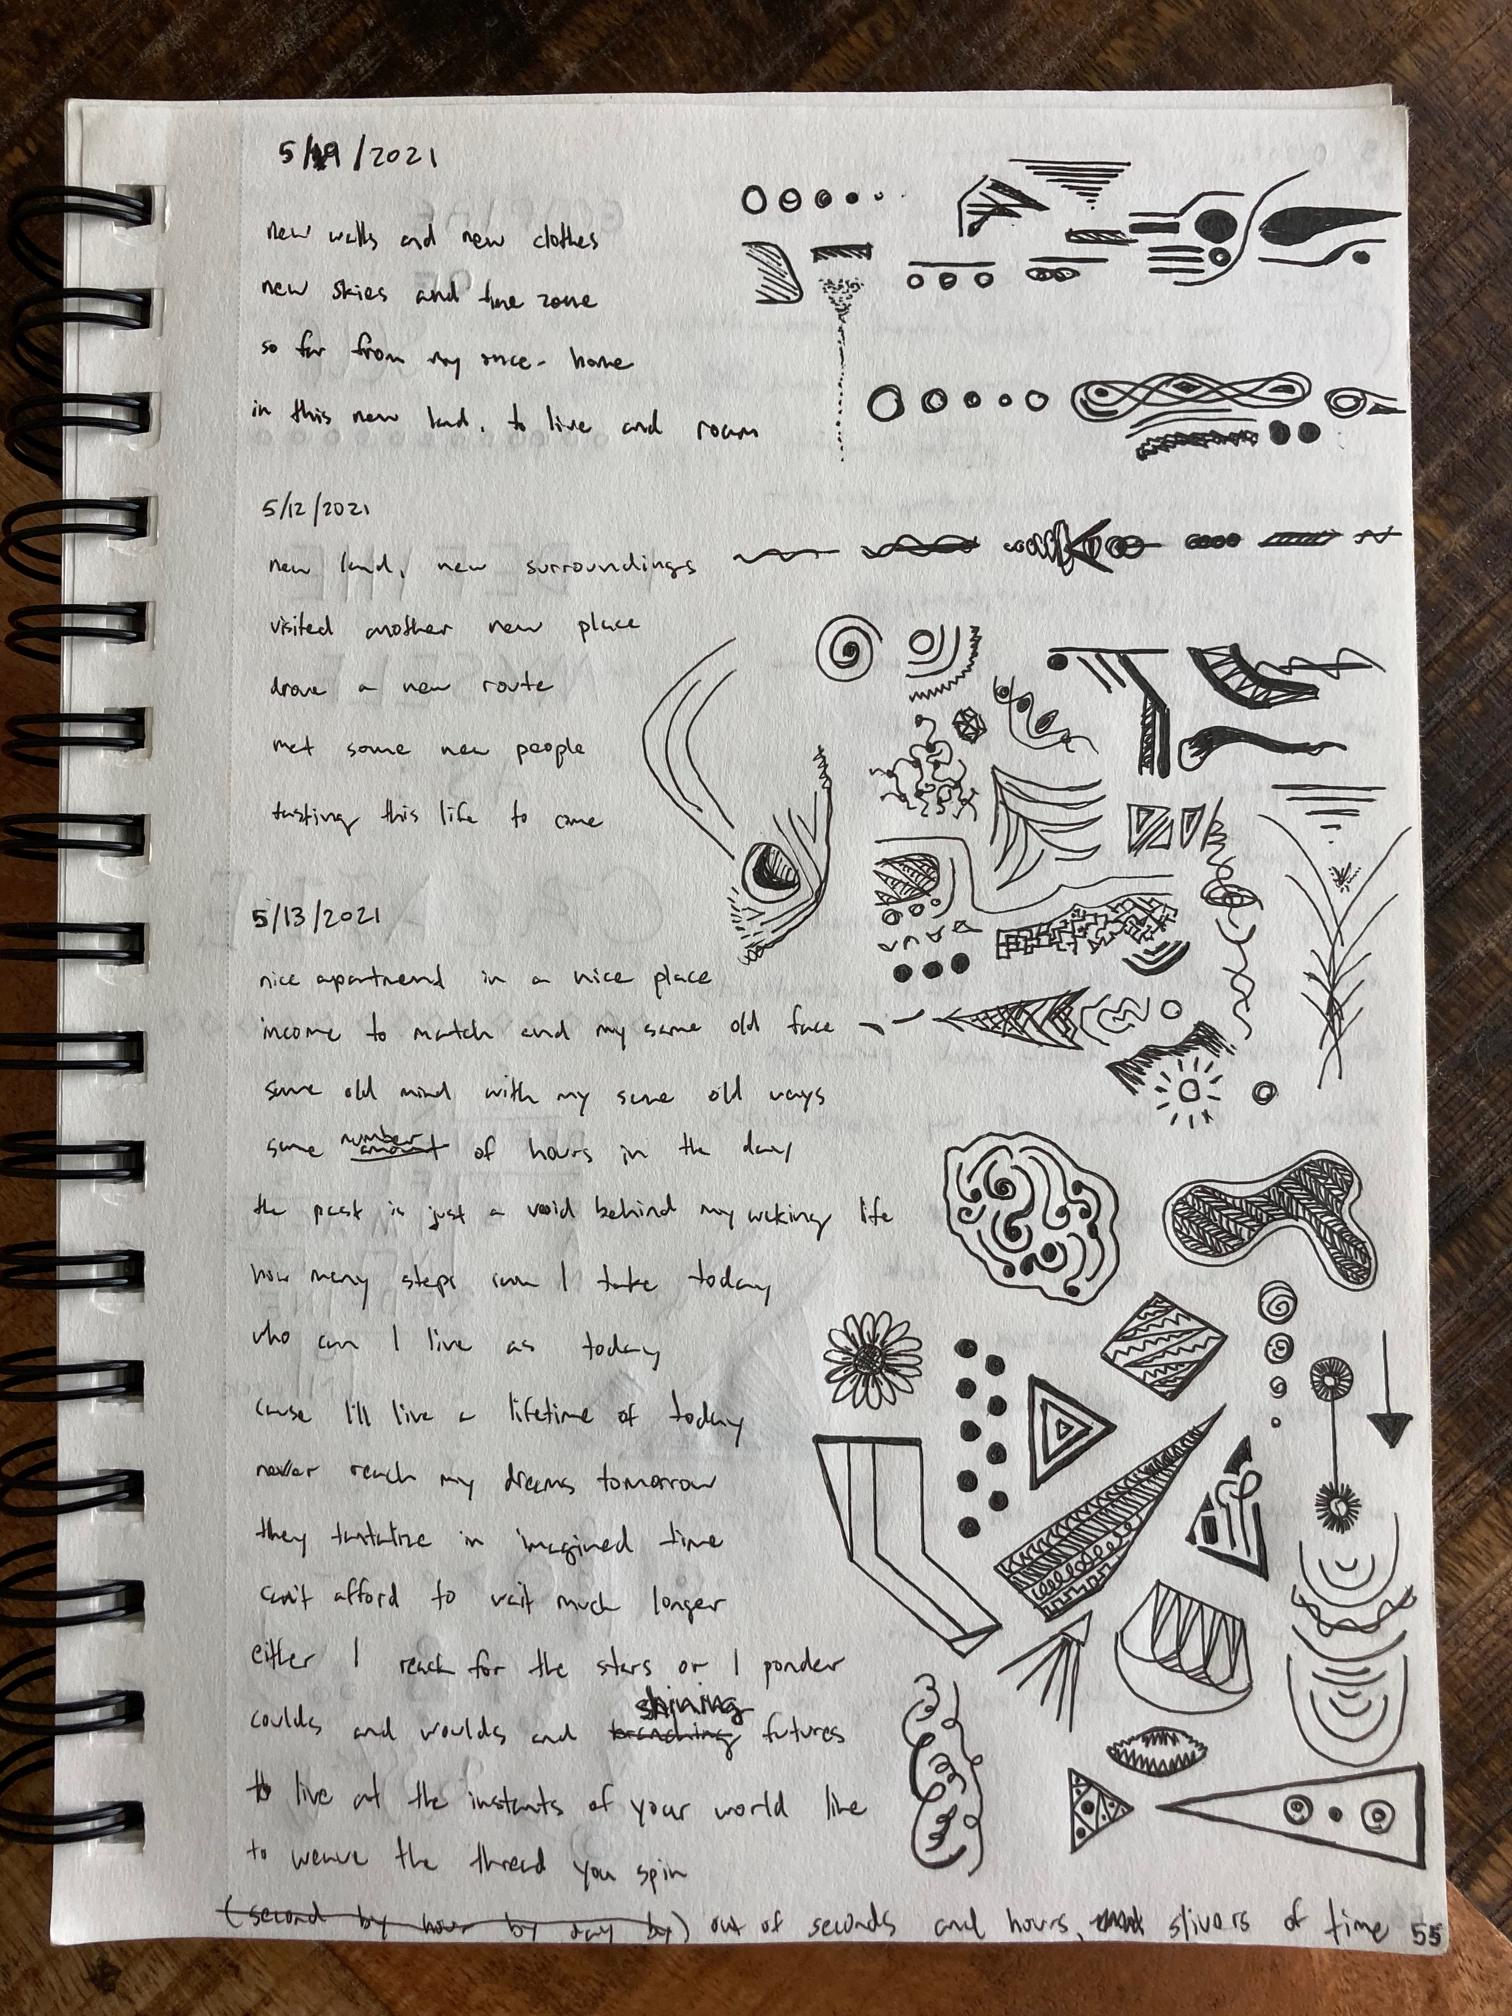 5/19/2021
new walls and new clothes
new skies and time zone
so far from my once-home
in this new land, to live and roam
5/12/2021
new land, new surroundings
visited another new place
drove a new route
met some new people
tasting this life to come
5/13/2021
nice apartment in a nice place
income to match and my same old face
same old mind with my same old ways
same number amount of hours in the day
the past is just a void behind my waking life
how many steps can I take today
who can I live as today
cause I'll live a lifetime of today
never reach my dreams tomorrow
they tantalize in imagined time
can't afford to wait much longer
either I reach for the stars or I ponder
coulds and woulds and branching shining futures
to live at the instants of your world line
to weave the thread you spin
(second by hour by day by) out of seconds and hours, slivers of time
55